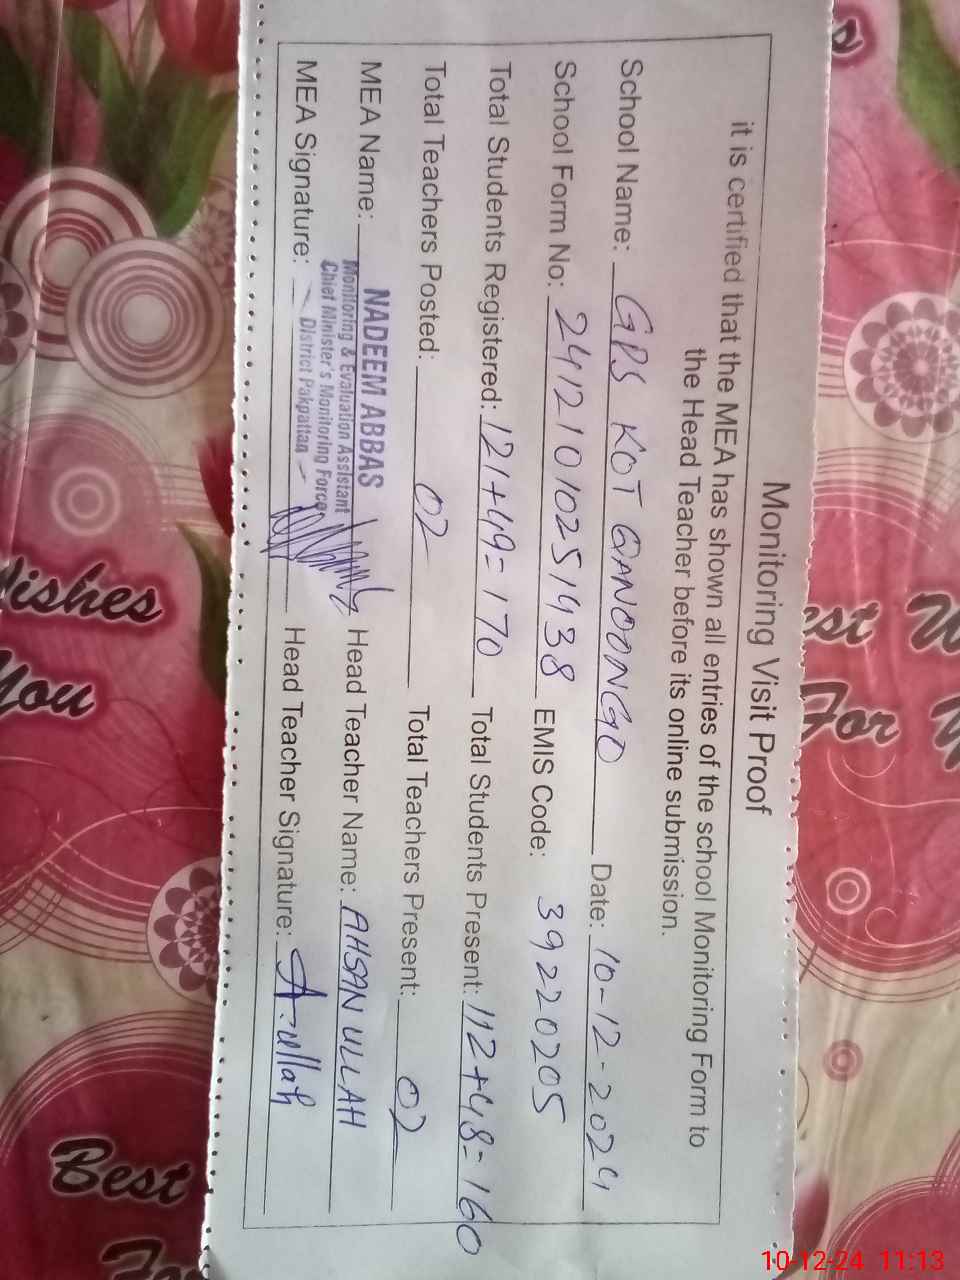 Monitoring Visit Proof
it is certified that the MEA has shown all entries of the school Monitoring Form to
the Head Teacher before its online submission.
School Name: GPS KOT QANOONGO Date: 10-12-2024
School Form No: 24121010251438 EMIS Code: 39220205
Total Students Registered: 121+49=170 Total Students Present: 112+48=160
Total Teachers Posted: 02 Total Teachers Present: 02
MEA Name: NADEEM ABBAS Head Teacher Name: AHSAN ULLAH
Monitoring & Evaluation Assistant
Chief Minister's Monitoring Force
MEA Signature: District Pakpattan Head Teacher Signature: A-ullah
ishes
You
Best
For
est W
For
Best
For
10-12-24 11:13